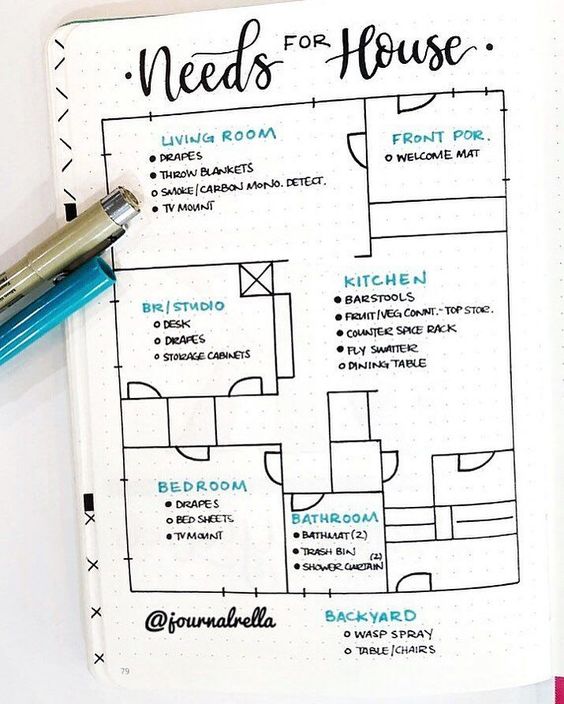 · Needs FOR House ·
LIVING ROOM
● DRAPES
● THROW BLANKETS
○ SMOKE/CARBON MONO. DETECT.
● TV MOUNT
FRONT POR.
○ WELCOME MAT
KITCHEN
● BARSTOOLS
● FRUIT/VEG CONNT.-TOP STOR.
● COUNTER SPICE RACK
● FLY SWATTER
○ DINING TABLE
BR/STUDIO
○ DESK
○ DRAPES
○ STORAGE CABINETS
BEDROOM
● DRAPES
○ BED SHEETS
● TV MOUNT
BATHROOM
● BATHMAT (2)
● TRASH BIN (2)
● SHOWER CURTAIN
@journalrella
BACKYARD
○ WASP SPRAY
○ TABLE/CHAIRS
79